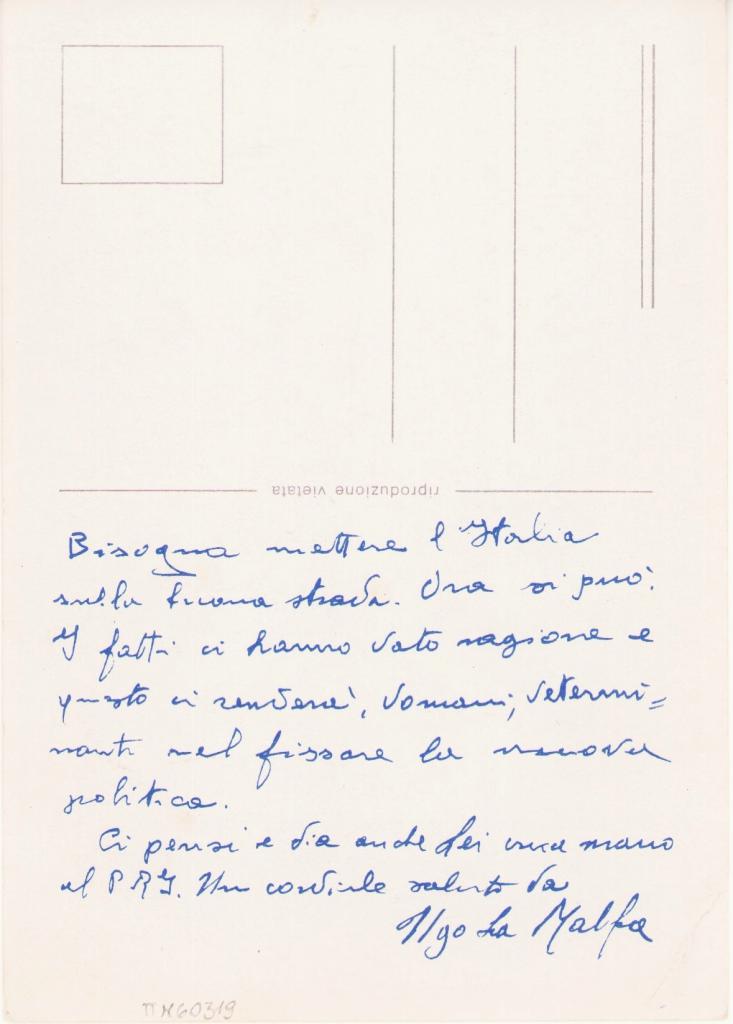 riproduzione vietata
Bisogna mettere l'Italia
sulla buona strada. Ora si può.
I fatti ci hanno dato ragione e
questo ci renderà, domani, determi=
nanti nel fissare la nuova
politica.
Ci pensi e dia anche Lei una mano
al PRI. Un cordiale saluto da
Ugo La Malfa